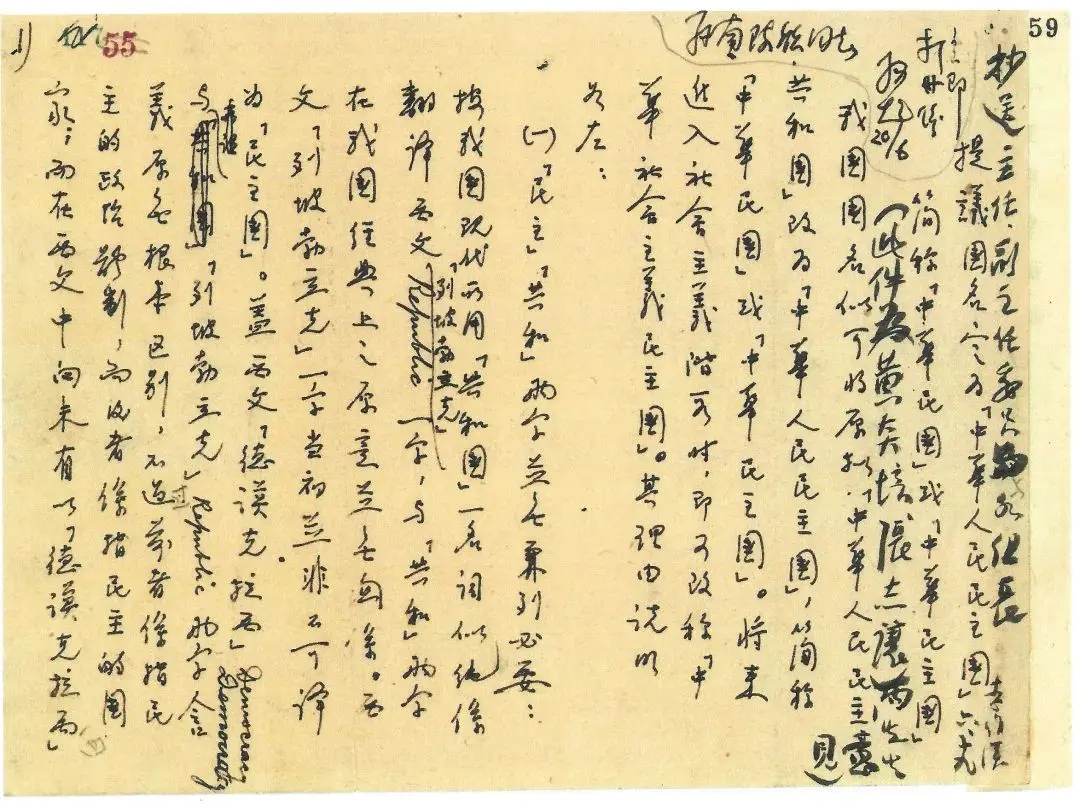 59
抄送主任、副主任委員
立即
打印後
20/6
提議國名定為「中華人民民主國」六、十九
簡称「中華民國」或「中華民主國」
(此件為黃炎培張志讓兩先生意見
我國國名似可將原拟「中華人民民主
共和國」改為「中華人民民主國」,以簡称
「中華民國」或「中華民主國」。將来
進入社會主義階段時,即可改称「中
華社會主義民主國」。其理由說明
如左:
(一)「民主」「共和」兩字並無乘列必要:
按我國現代所用「共和國」一名詞似純係
翻譯西文「列坡勃立克」Republic一字,与「共和」兩字
在我國經典上之原意並無關係。西
文「列坡勃立克」一字當初並非不可譯
為「民主國」。蓋西文「德謨克拉西」Democracy
Democracy
与「列坡勃立克」Republic兩字含
義原無根本区別,不過前者係指民
主的政治體制,而後者係指民主的國
家;而在西文中向未有以「德謨克拉西」
1)
55